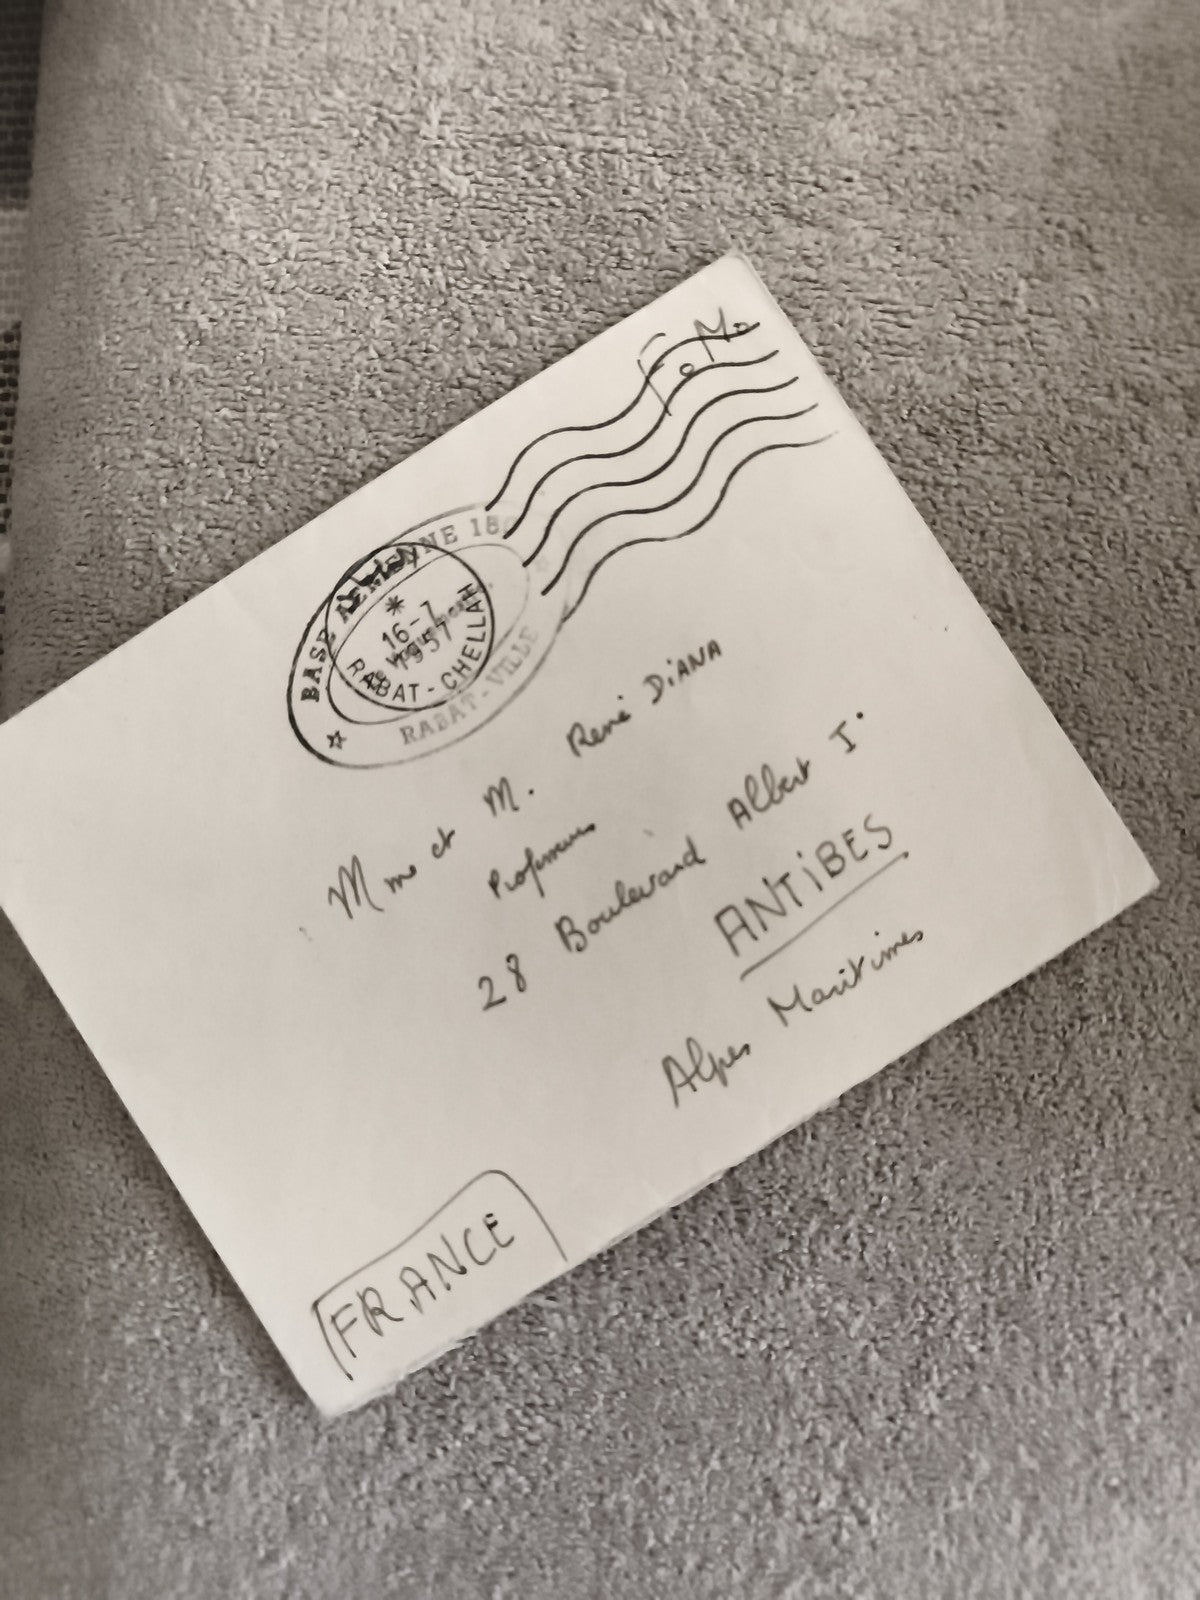 F. M.
BASE AERIENNE 18
RABAT-VILLE
16-7
1957
RABAT-CHELLAH
Mme et M. René DiANA
Professeurs
28 Boulevard Albert I°
ANTiBES
Alpes Maritimes
FRANCE